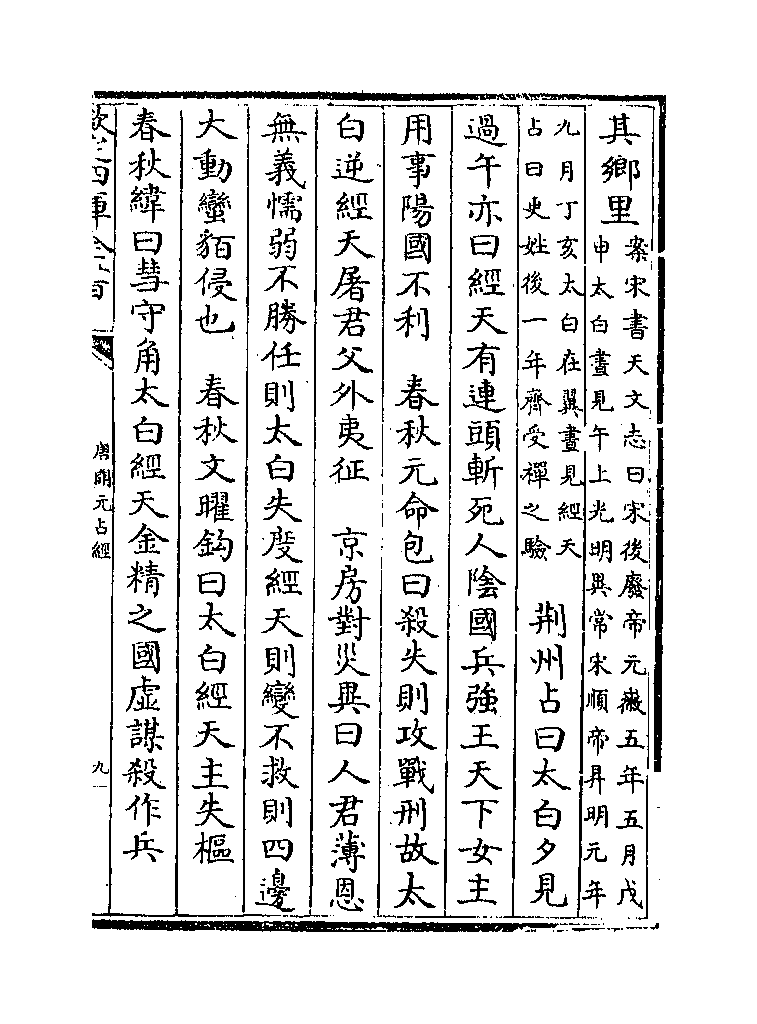 其鄉里
案宋書天文志曰宋後廢帝元徽五年五月戊
申太白晝見午上光明異常宋順帝昇明元年
九月丁亥太白在翼晝見經天
占曰更姓後一年齊受禪之驗
荆州占曰太白夕見
過午亦曰經天有連頭斬死人陰國兵強王天下女主
用事陽國不利　春秋元命包曰殺失則攻戰刑故太
白逆經天屠君父外夷征　京房對災異曰人君薄恩
無義懦弱不勝任則太白失度經天則變不救則四邊
大動蠻貊侵也　春秋文曜鈎曰太白經天主失樞
春秋緯曰彗守角太白經天金精之國虛謀殺作兵
唐開元占經
九